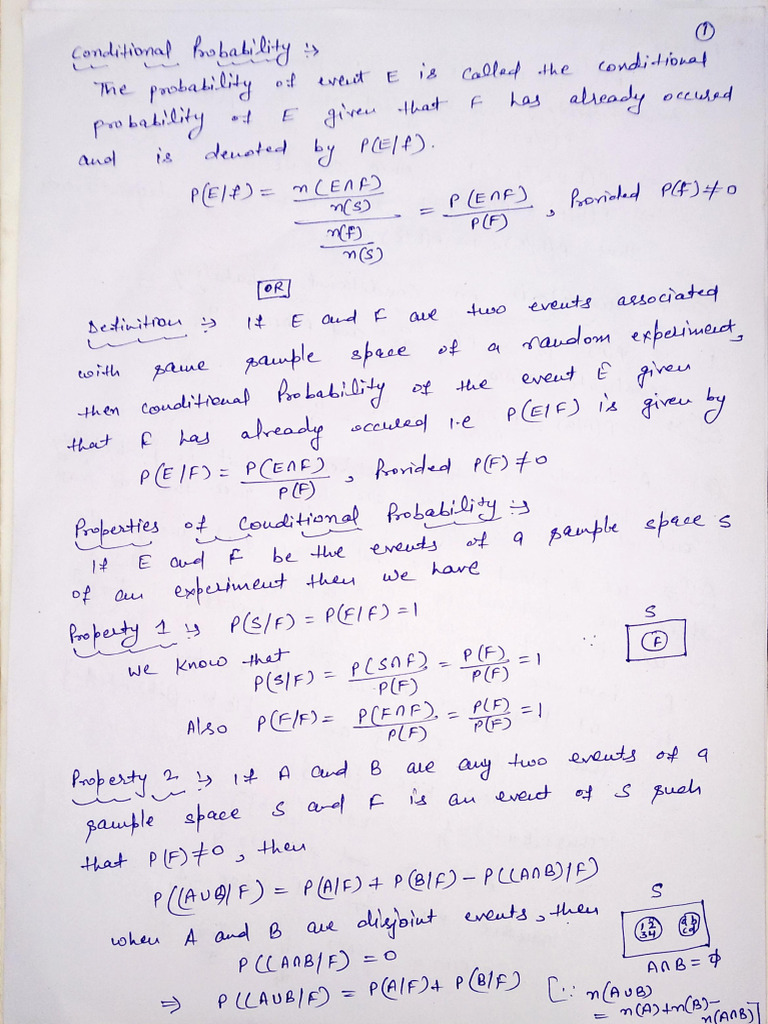 ①
Conditional Probability :→
The probability of event E is called the conditional
probability of E given that F has already occured
and is denoted by P(E/f).
P(E/f) = n(E∩F)/n(S) / n(f)/n(S) = P(E∩F)/P(F), Provided P(f)≠0
OR
Definition :→ If E and F are two events associated
with same sample space of a random experiment,
then conditional Probability of the event E given
that F has already occured i.e P(E/F) is given by
P(E/F) = P(E∩F)/P(F), Provided P(F)≠0
Properties of Conditional Probability :→
If E and F be the events of a sample space S
of an experiment then we have
Property 1 :→ P(S/F) = P(F/F) = 1
S
F
∵
We know that
P(S/F) = P(S∩F)/P(F) = P(F)/P(F) = 1
Also P(F/F) = P(F∩F)/P(F) = P(F)/P(F) = 1
Property 2 :→ If A and B are any two events of a
sample space S and F is an event of S such
that P(F)≠0, then
P((A∪B)/F) = P(A/F) + P(B/F) - P((A∩B)/F)
when A and B are disjoint events, then
S
1 2
3 4
a b
c d
P((A∩B/F) = 0
A∩B = ϕ
⇒ P((A∪B/F) = P(A/F) + P(B/F) [∵ n(A∪B)
= n(A)+n(B)-
n(A∩B)]